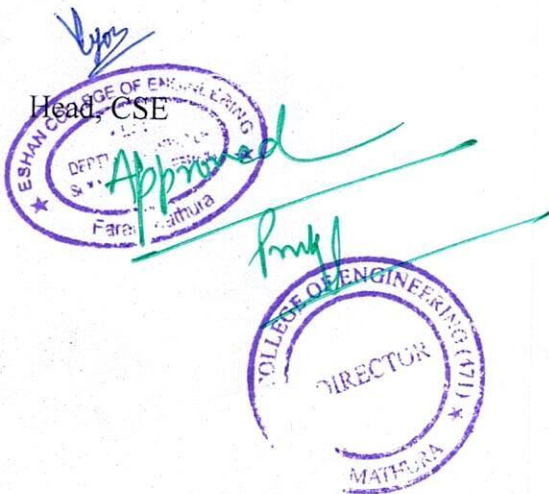 Head, CSE
★ ESHAN COLLEGE OF ENGINEERING ★
DEPTT
Farah Mathura
Approved
COLLEGE OF ENGINEERING (471) ★
DIRECTOR
MATHURA